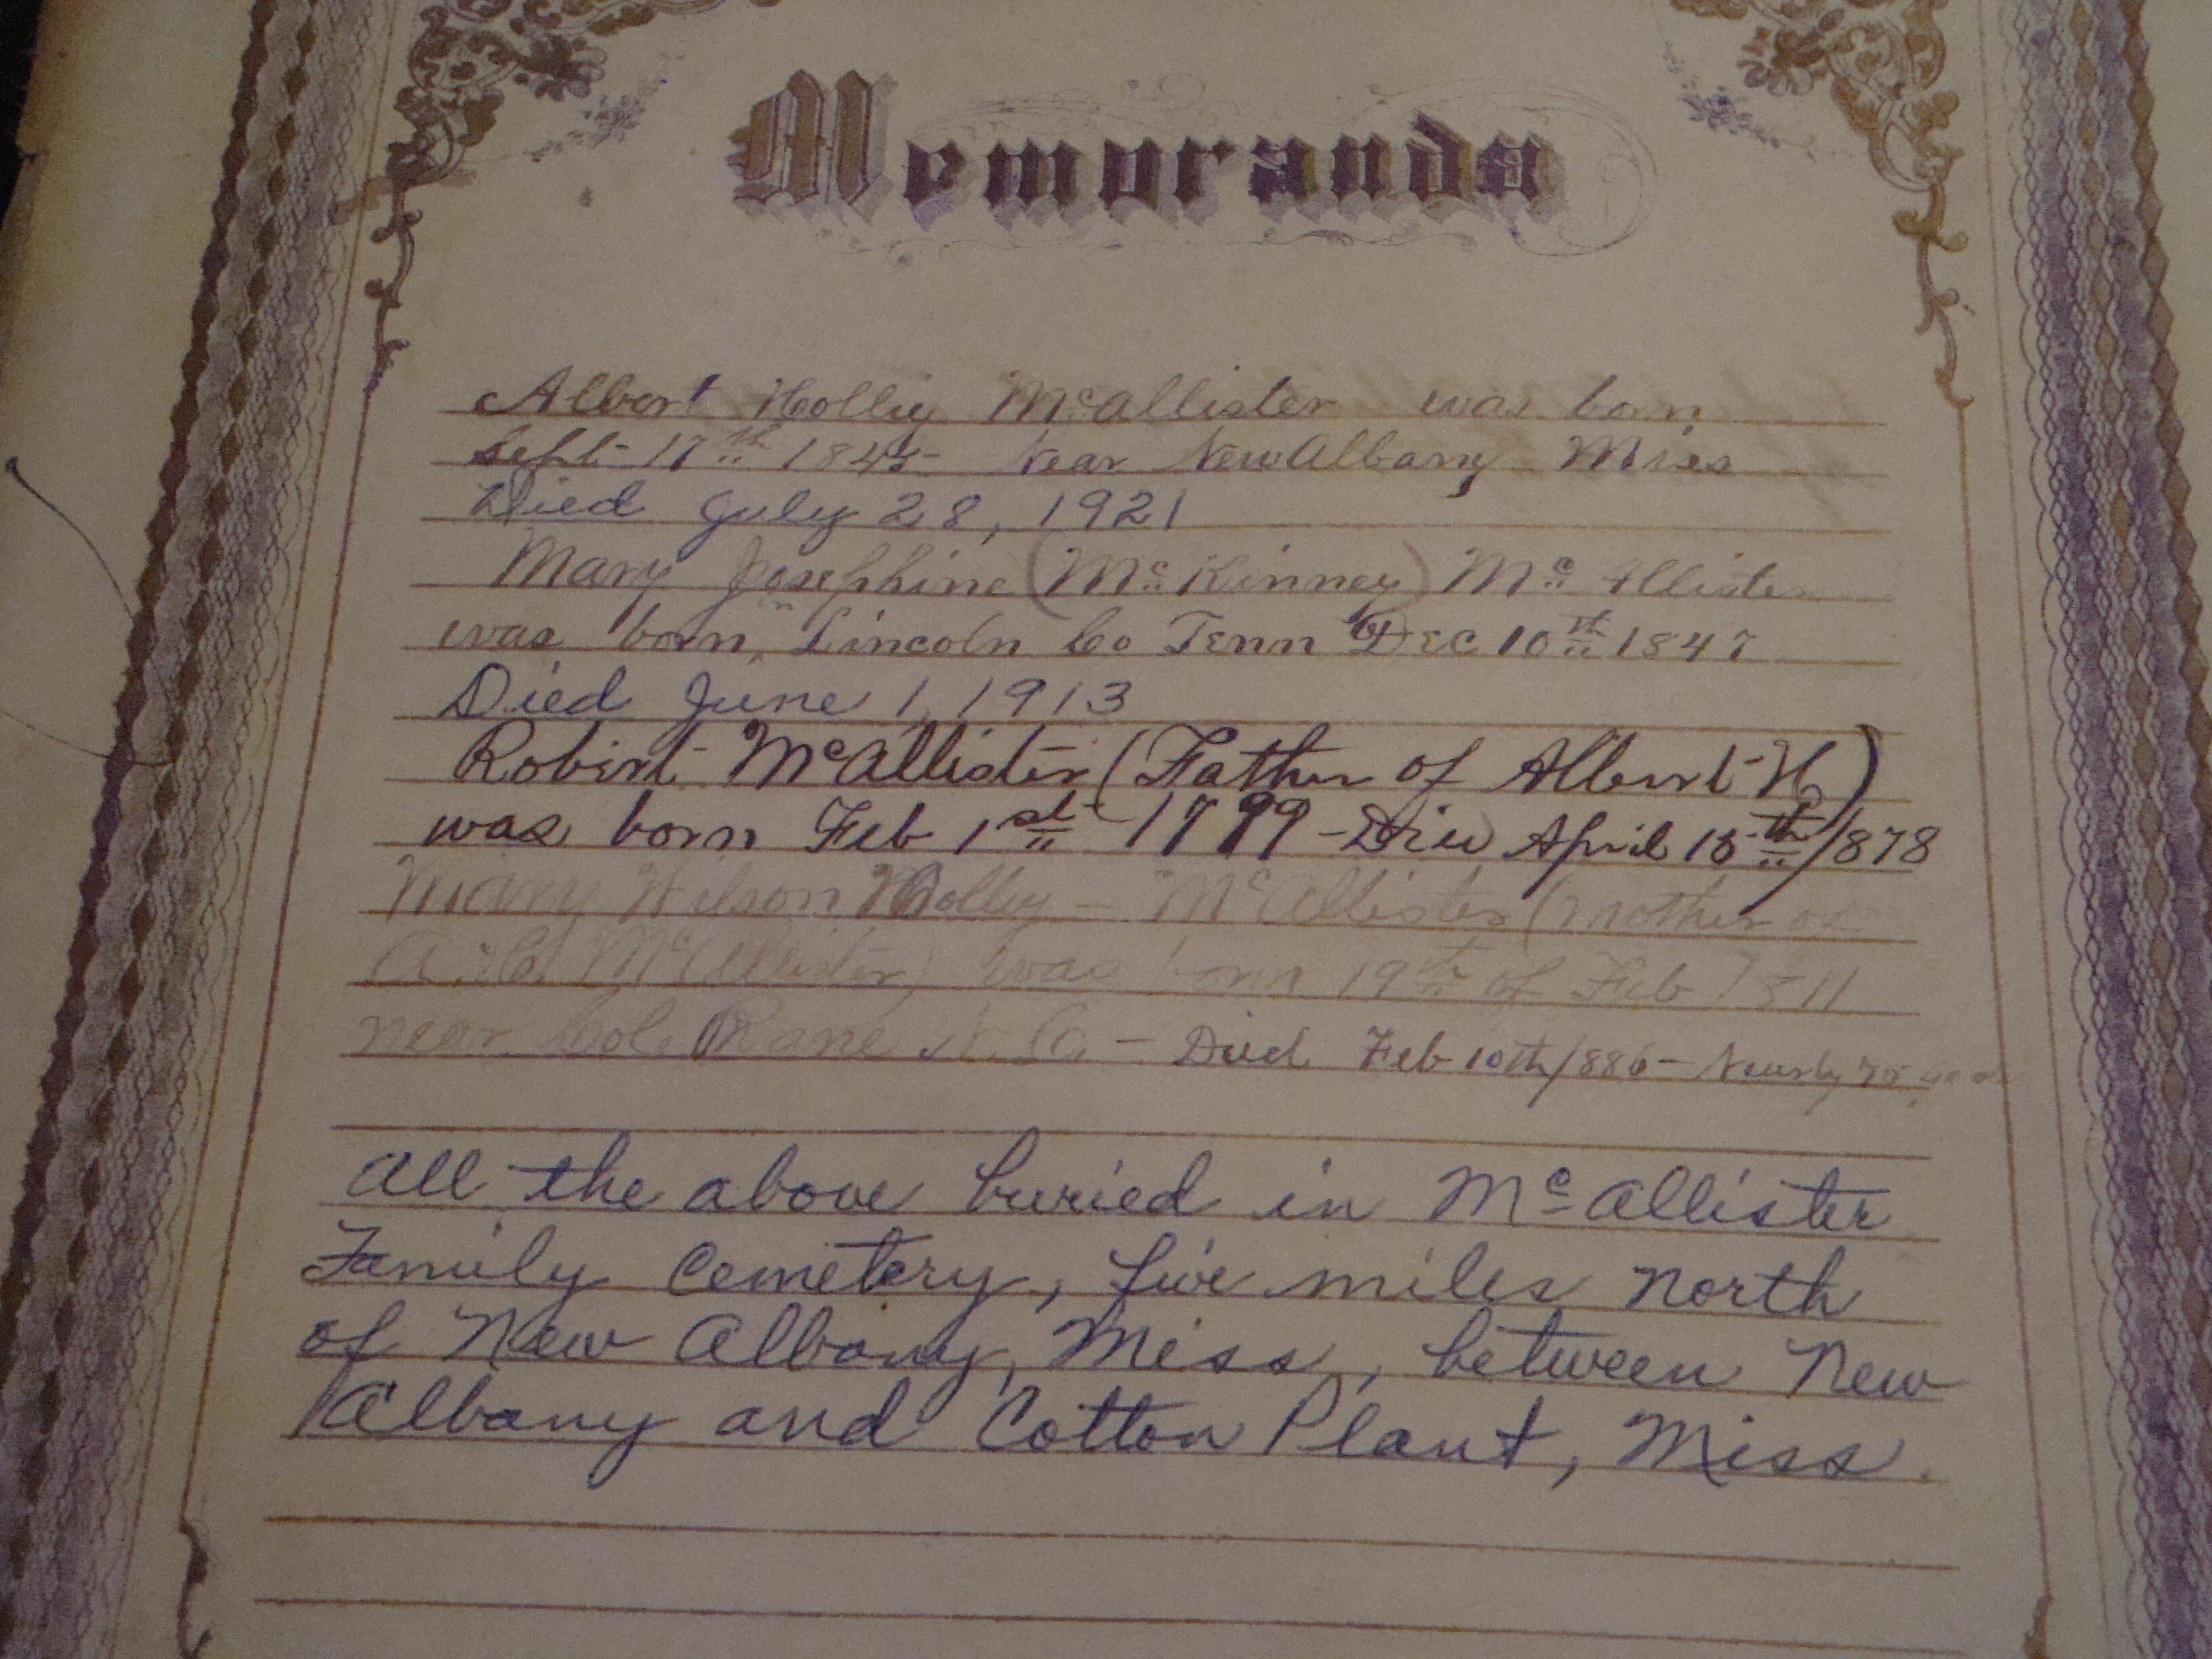 Memoranda
Albert Holly McAllister was born
Sept 17th 1845 Near New Albany Miss
Died July 28, 1921
Mary Josephine (Mc Kinney) Mc Allister
was born, Lincoln Co Tenn Dec 10th 1847
Died June 1, 1913
Robert McAllister (Father of Albert H)
was born Feb 1st 1799 - Died April 15th/1878
Mary Wilson Holly - McAllister (mother of
A. H. McAllister) was born 19th of Feb 1811
near Cole Rane N. C. - Died Feb 10th/1886 - Nearly 75 years
All the above buried in McAllister
Family Cemetery, five miles North
of New Albany, Miss, between New
Albany and Cotton Plant, Miss.